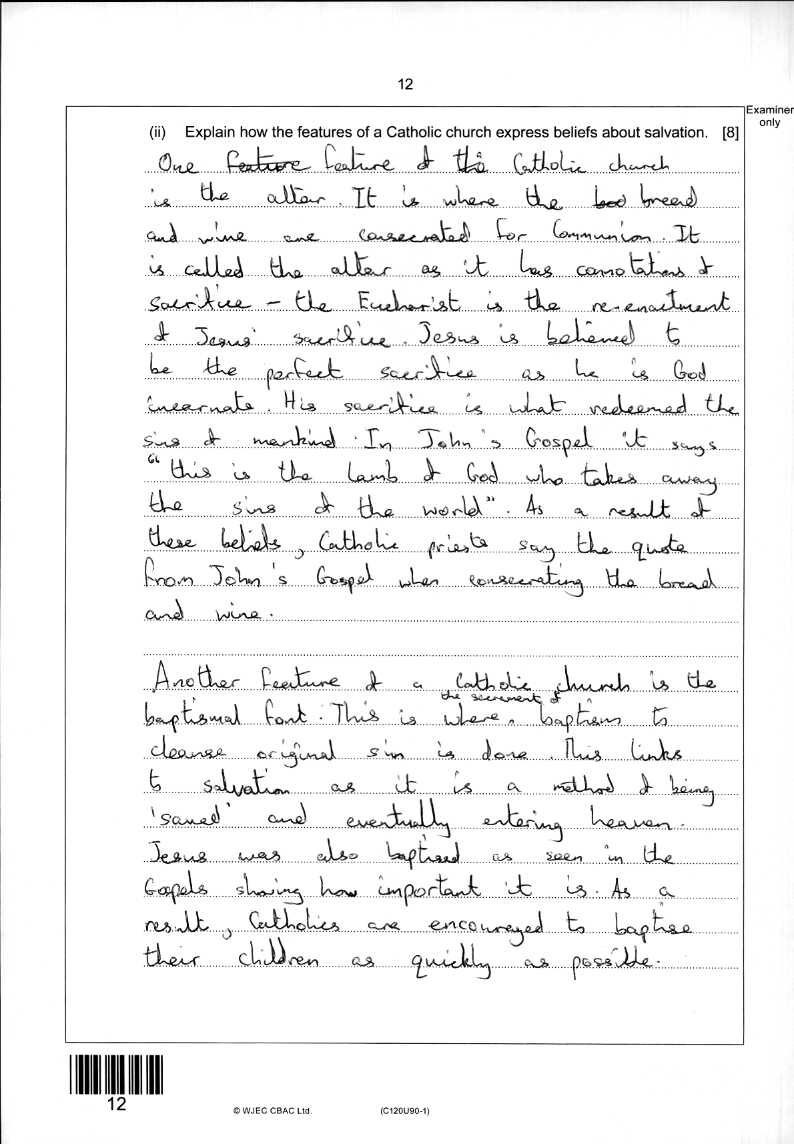 12
Examiner
only
(ii) Explain how the features of a Catholic church express beliefs about salvation. [8]
One feature feature of the Catholic church
is the altar. It is where the bread
and wine are consecrated for Communion. It
is called the altar as it has connotations of
sacrifice – the Eucharist is the re-enactment
of Jesus' sacrifice. Jesus is believed to
be the perfect sacrifice as he is God
incarnate. His sacrifice is what redeemed the
sins of mankind. In John's Gospel it says
"this is the Lamb of God who takes away
the sins of the world". As a result of
these beliefs, Catholic priests say the quote
from John's Gospel when consecrating the bread
and wine.
Another feature of a Catholic church is the
baptismal font. This is where the sacrement of baptism to
cleanse original sin is done. This links
to salvation as it is a method of being
'saved' and eventually entering heaven.
Jesus was also baptised as seen in the
Gospels showing how important it is. As a
result, Catholics are encouraged to baptise
their children as quickly as possible.
12
© WJEC CBAC Ltd.
(C120U90-1)